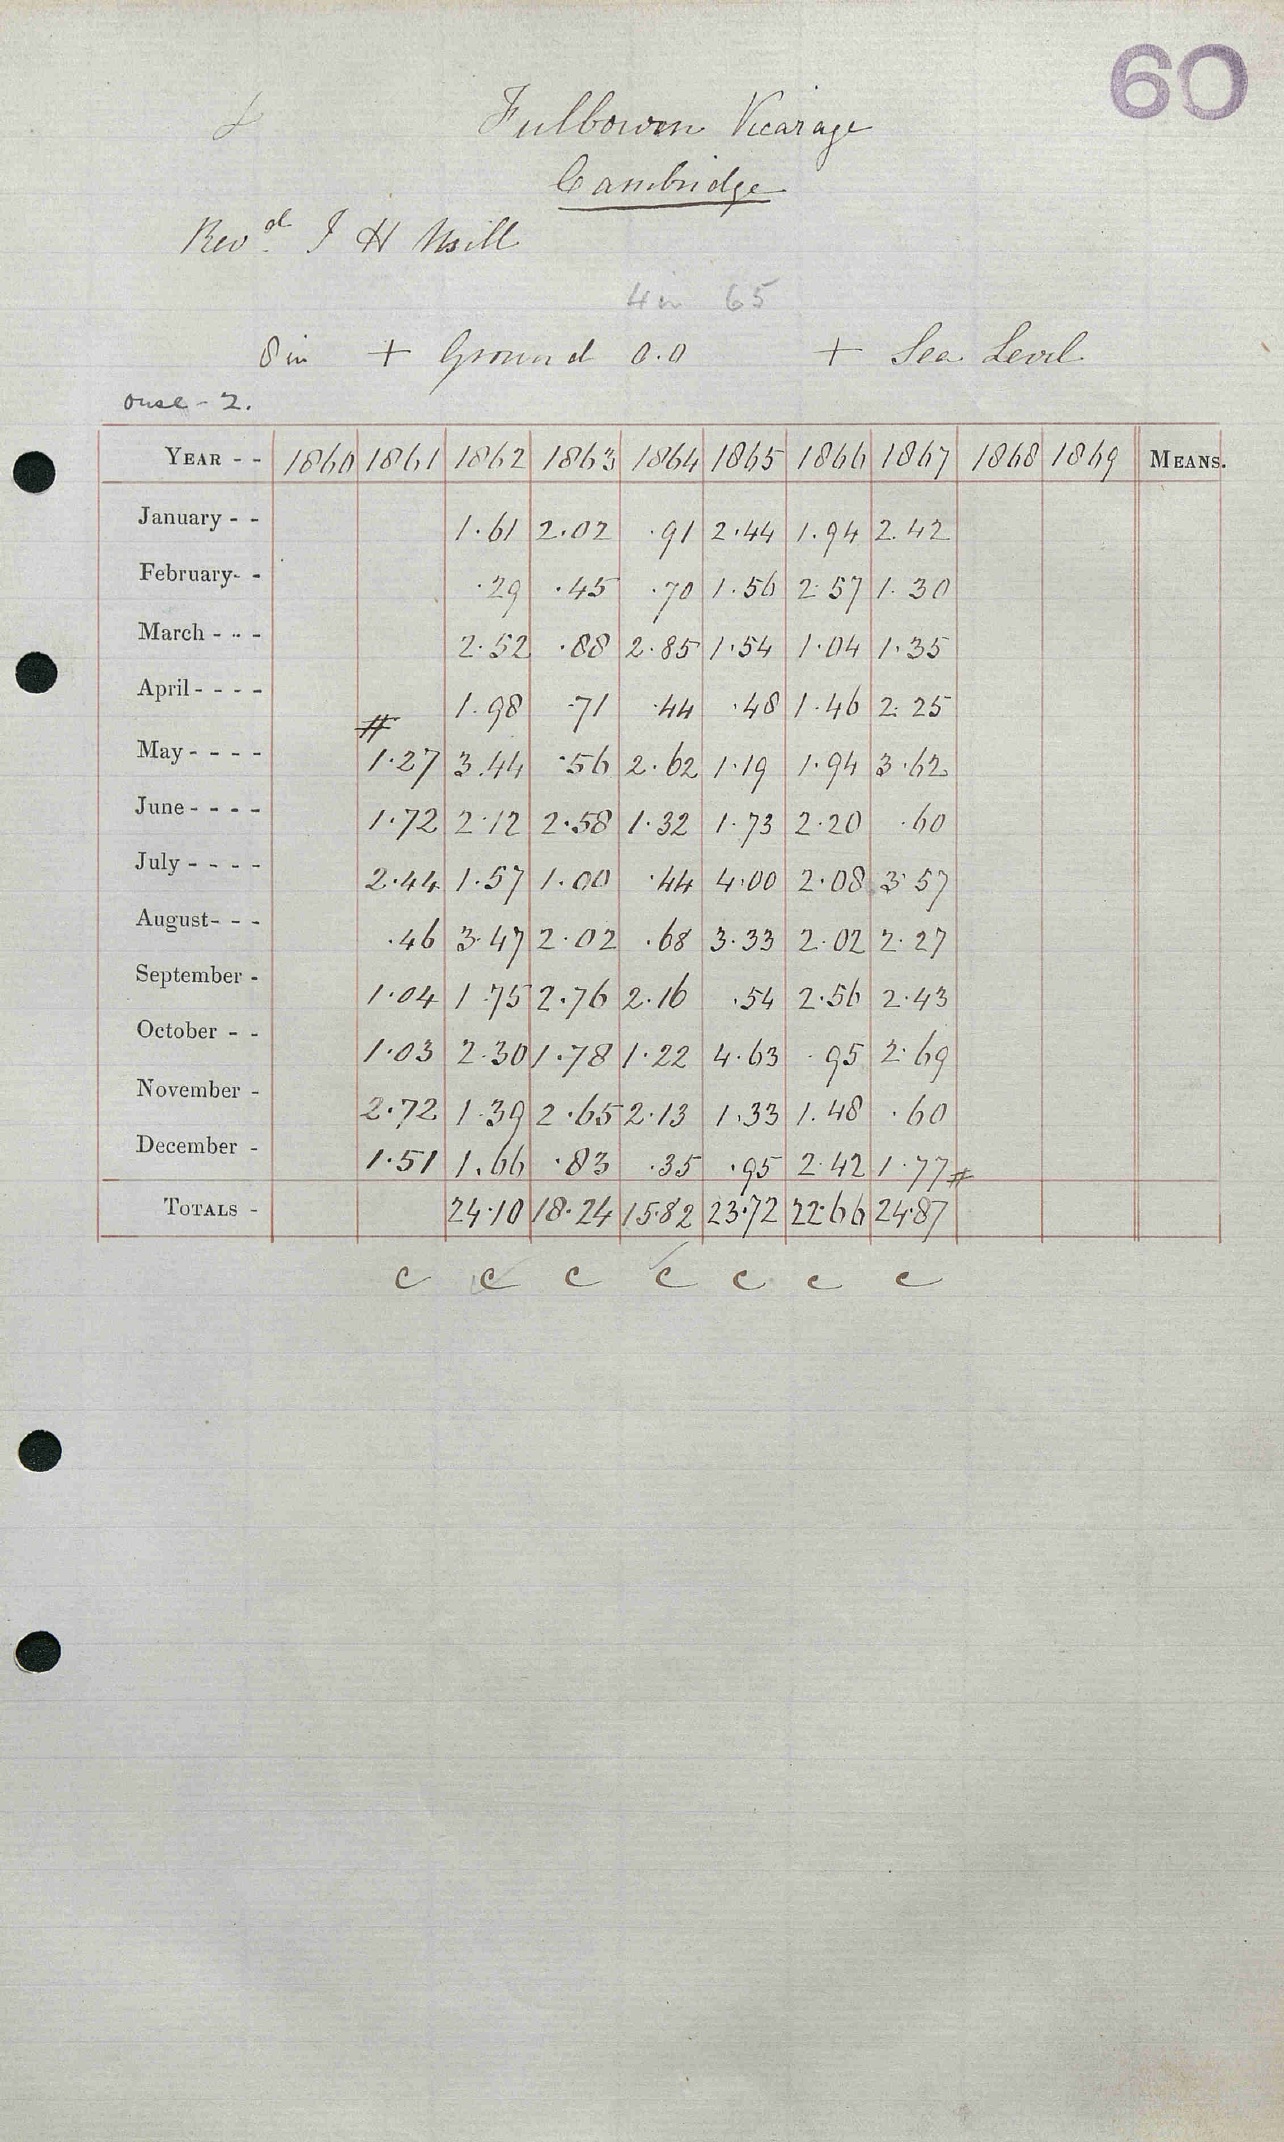 60
Fulbourn Vicarage
Cambridge
Rev.d J H
4 in 65
8 in + Ground 0.0 + Sea Level
Ouse - 2.
YEAR - - 1860 1861 1862 1863 1864 1865 1866 1867 1868 1869 MEANS.
January - - 1.61 2.02 .91 2.44 1.94 2.42
February - - .29 .45 .70 1.56 2.57 1.30
March - - - 2.52 .88 2.85 1.54 1.04 1.35
April - - - - 1.98 .71 .44 .48 1.46 2.25
#
May - - - - 1.27 3.44 .56 2.62 1.19 1.94 3.62
June - - - - 1.72 2.12 2.58 1.32 1.73 2.20 .60
July - - - - 2.44 1.57 1.00 .44 4.00 2.08 3.57
August - - - .46 3.47 2.02 .68 3.33 2.02 2.27
September - 1.04 1.75 2.76 2.16 .54 2.56 2.43
October - - 1.03 2.30 1.78 1.22 4.63 .95 2.69
November - 2.72 1.39 2.65 2.13 1.33 1.48 .60
December - 1.51 1.66 .83 .35 .95 2.42 1.77 #
TOTALS - 24.10 18.24 15.82 23.72 22.66 24.87
c c c c c c c